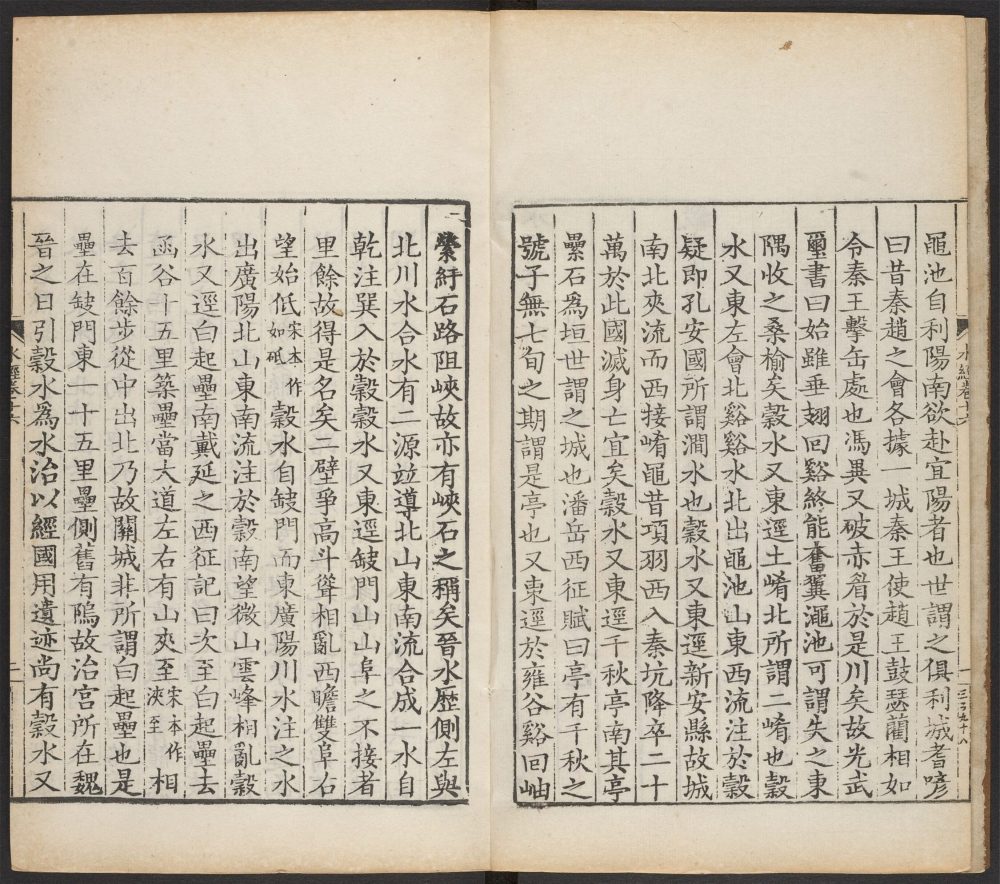 黽池自利陽南欲赴宜陽者也世謂之俱利城耆諺
曰昔秦趙之會各據一城秦王使趙王鼓瑟藺相如
令秦王擊缶處也馮異又破赤眉於是川矣故光武
璽書曰始雖垂翅回谿終能奮翼澠池可謂失之東
隅收之桑榆矣穀水又東逕土崤北所謂二崤也穀
水又東左會北谿谿水北出黽池山東西流注於穀
疑即孔安國所謂澗水也穀水又東逕新安縣故城
南北夾流而西接崤黽昔項羽西入秦坑降卒二十
萬於此國滅身亡宜矣穀水又東逕千秋亭南其亭
壘石爲垣世謂之城也潘岳西征賦曰亭有千秋之
號子無七旬之期謂是亭也又東逕於雍谷谿回岫
縈紆石路阻峽故亦有峽石之稱矣晉水歷側左與
北川水合水有二源竝導北山東南流合成一水自
乾注巽入於穀穀水又東逕缺門山山阜之不接者
里餘故得是名矣二壁爭高斗聳相亂西瞻雙阜右
望始低宋本作如砥穀水自缺門而東廣陽川水注之水
出廣陽北山東南流注於穀南望微山雲峰相亂穀
水又逕白起壘南戴延之西征記曰次至白起壘去
函谷十五里築壘當大道左右有山夾至宋本作浹至相
去百餘步從中出北乃故關城非所謂白起壘也是
壘在缺門東一十五里壘側舊有隖故治官所在魏
晉之日引穀水爲水治以經國用遺迹尚有穀水又
水經卷十六
水經卷十六
二